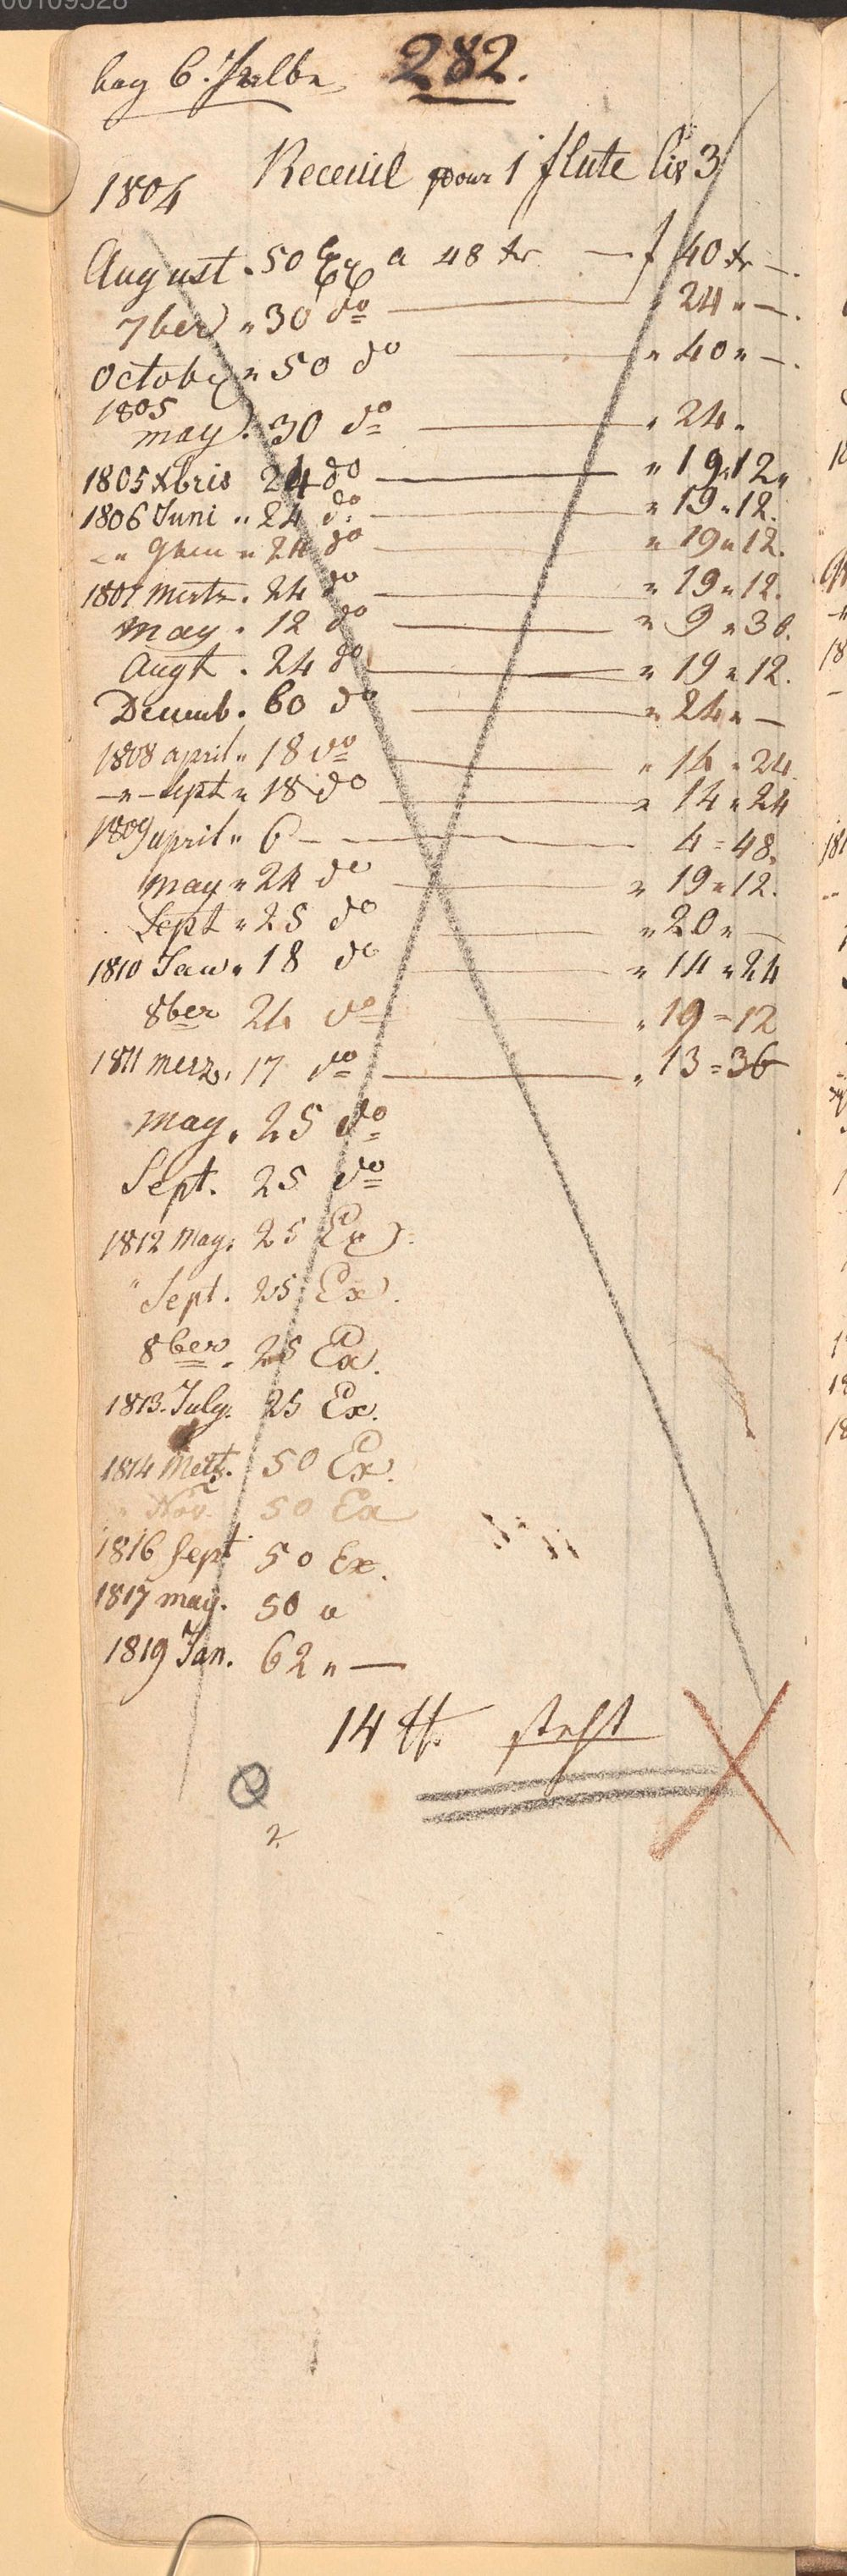 282.
1804 Receuil pour 1 flute liv 3
August . 50 Ex a 48 xr — f 40 xr —.
7ber " 30 do — " 24 " —.
October " 50 do — " 40 " —.
1805
may . 30 do — " 24 "
1805 Xbris 24 do — " 19 " 12 "
1806 Juni " 24 do — " 19 " 12.
" " 24 do — " 19 " 12.
1807 Mertz . 24 do — " 19 " 12.
May . 12 do — " 9 " 36.
Augt . 24 do — " 19 " 12.
Decemb . 60 do — " 24 " —
1808 april " 18 do — " 14 " 24.
— " — Sept " 18 do — " 14 " 24
1809 april " 6 — — 4 = 48.
may " 24 do — " 19 " 12.
Sept " 25 do — " 20 " —
1810 Jan " 18 do — " 14 " 24
8ber 24 do — " 19 = 12
1811 Merz . 17 do — " 13 = 36
May . 25 do
Sept. 25 do
1812 May: 25 Ex.
" Sept. 25 Ex.
8ber . 25 Ex.
1813. July. 25 Ex.
1814 Metz. 50 Ex.
" Nov. 50 Ex
1816 Sept 50 Ex.
1817 may. 50 "
1819 Jan. 62 " —
14 steht
2